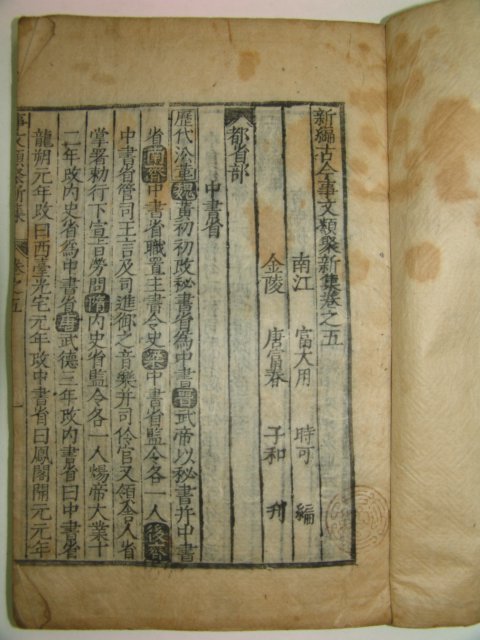 新編古今事文類聚新集卷之五
南江　富大用　時可　編
金陵　唐富春　子和　刋
都省部
中書省
歷代沿革魏黃初初改秘書省爲中書晋武帝以秘書并中書
省南齊中書省職置主書令史梁中書省監令各一人後齊
中書省管司王言及司進御之音樂并司伶官又領舍人省
掌署勑行下宣旨勞問隋内史省監令各一人煬帝大業十
二年改内史省爲中書省唐武德三年改内書省曰中書省
龍朔元年改曰西臺光宅元年改中書省曰鳳閣開元元年
事文類聚新集　卷之五